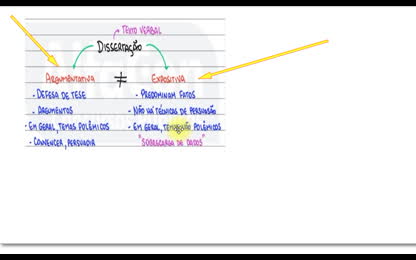 TEXTO VERBAL
DISSERTAÇÃO
ARGUMENTATIVA ≠ EXPOSITIVA
- DEFESA DE TESE
- PREDOMINAM FATOS
- ARGUMENTOS
- NÃO HÁ TÉCNICAS DE PERSUASÃO
- EM GERAL, TEMAS POLÊMICOS
- EM GERAL, TEMAS NÃO POLÊMICOS
- CONVENCER, PERSUADIR
"SOBRECARGA DE DADOS"